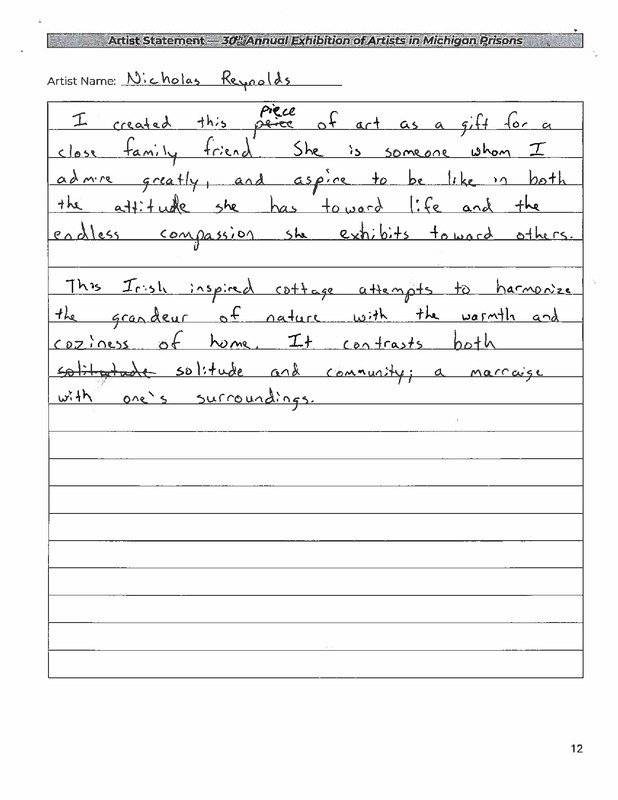 Artist Statement — 30th Annual Exhibition of Artists in Michigan Prisons
Artist Name: Nicholas Reynolds
piece
I created this peice of art as a gift for a
close family friend. She is someone whom I
admire greatly, and aspire to be like in both
the attitude she has toward life and the
endless compassion she exhibits toward others.
This Irish inspired cottage attempts to harmonize
the grandeur of nature with the warmth and
coziness of home. It contrasts both
solitatude solitude and community; a marraige
with one's surroundings.
12